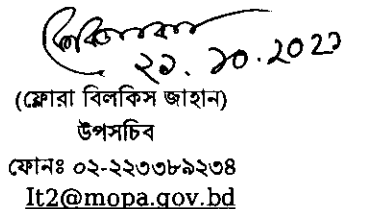 ২৯.১০.২০২৩
(ফ্লোরা বিলকিস জাহান)
উপসচিব
ফোনঃ ০২-২২৩৩৮৯২৩৪
It2@mopa.gov.bd